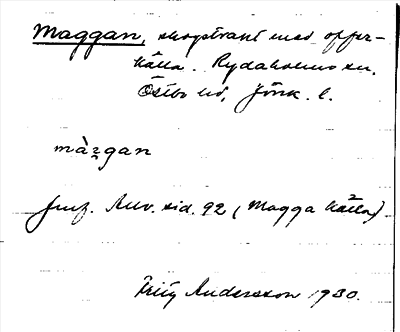 Maggan, skogstrakt med offer-
källa. Rydaholms sn.
Östbo hd, Jönk. l.
màggan
Jmf. Auv. sid. 92 (Magga källa).
Fritz Andersson 1930.